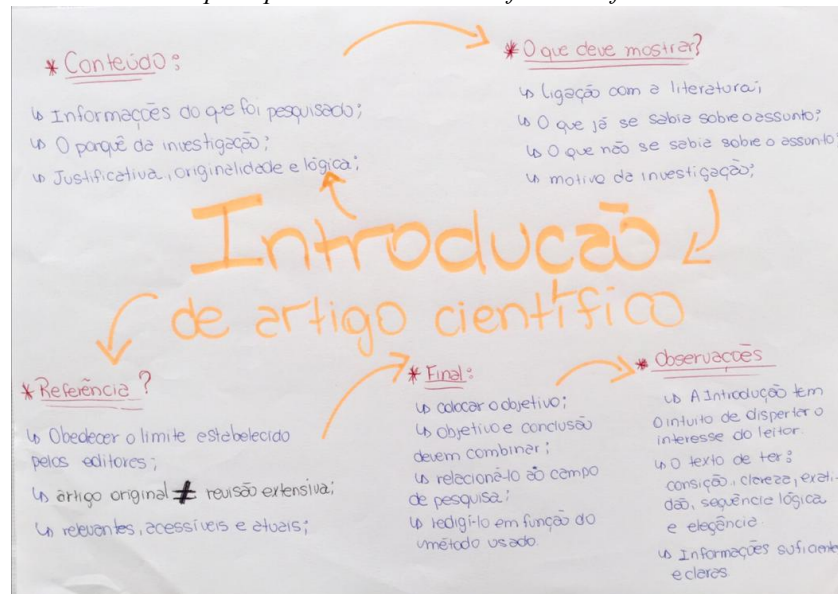 * Conteúdo:
↳ Informações do que foi pesquisado;
↳ O porquê da investigação;
↳ Justificativa, originalidade e lógica;
* O que deve mostrar?
↳ ligação com a literatura;
↳ O que já se sabia sobre o assunto;
↳ O que não se sabia sobre o assunto;
↳ motivo da investigação;
Introdução
de artigo científico
* Referência?
↳ Obedecer o limite estabelecido
pelos editores;
↳ artigo original ≠ revisão extensiva;
↳ relevantes, acessíveis e atuais;
* Final:
↳ colocar o objetivo;
↳ objetivo e conclusão
devem combinar;
↳ relacioná-lo ao campo
de pesquisa;
↳ redigí-lo em função do
método usado.
* Observações
↳ A Introdução tem
o intuito de disperter o
interesse do leitor.
↳ O texto de ter:
consição, clareza, exati-
dão, sequência lógica
e elegância.
↳ Informações suficiente
e claras